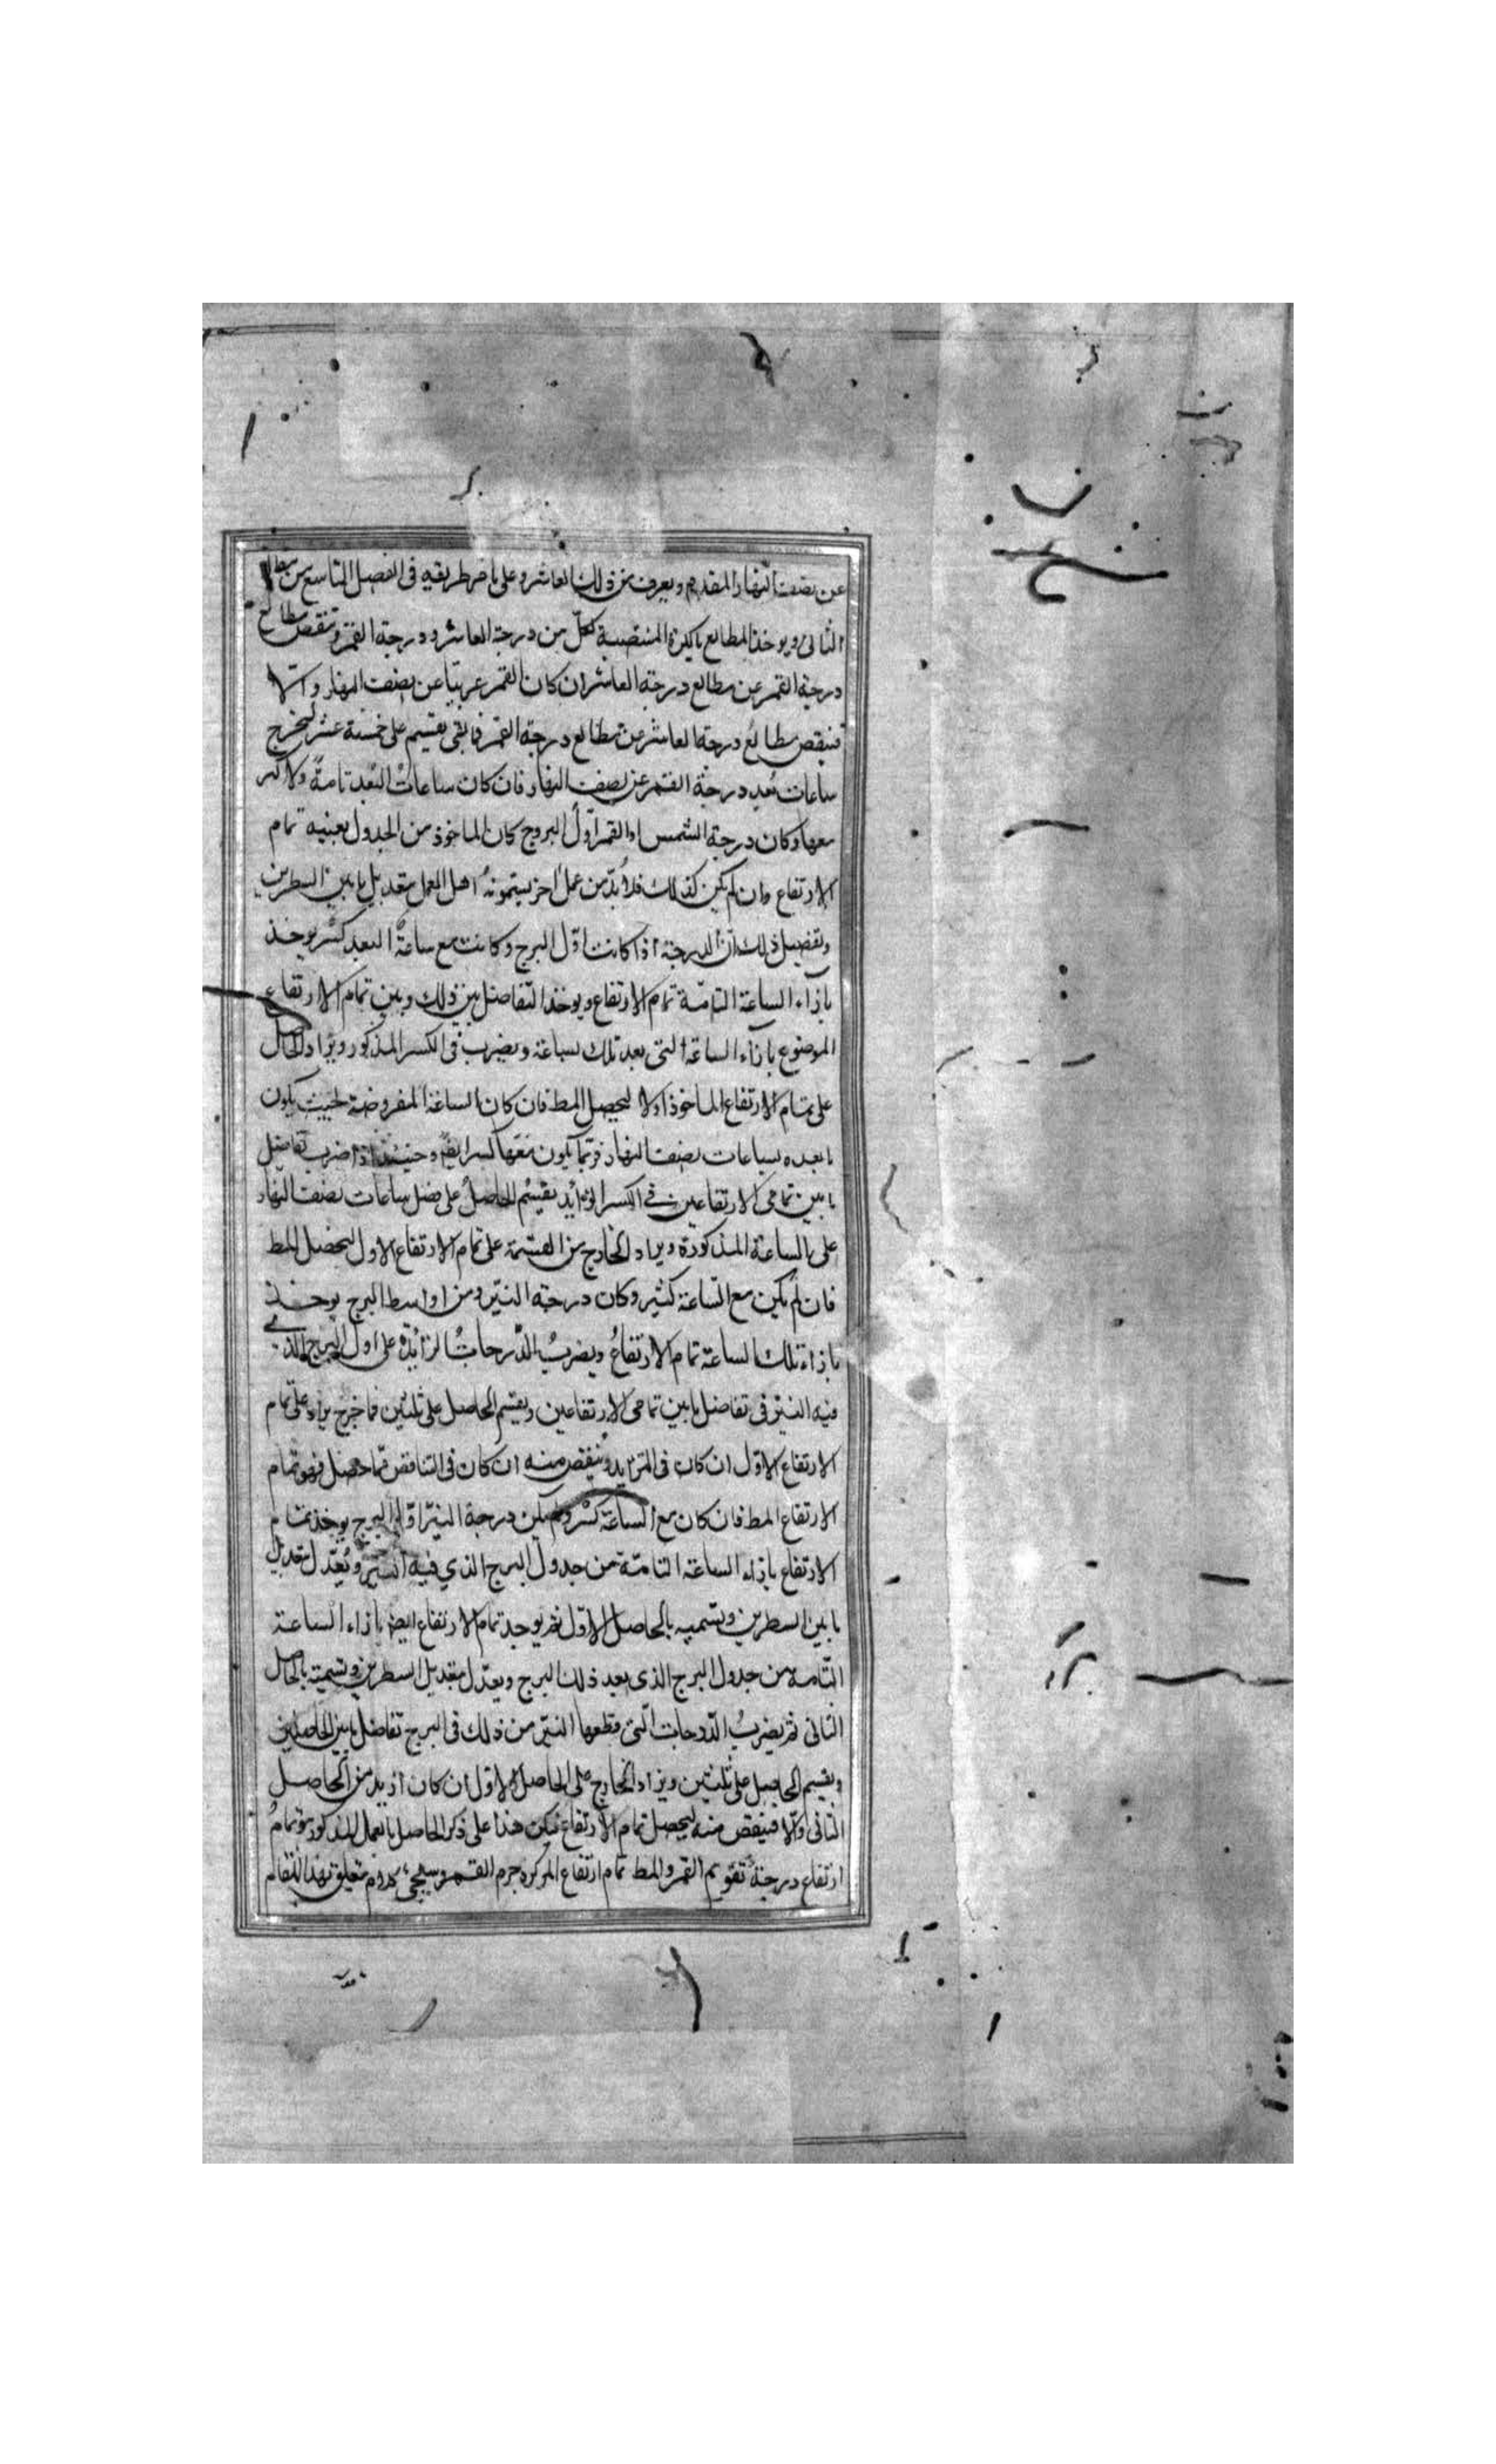 عن نصف النهار المقدم ويعرف من ذلك العاشر وعلى ما مر طريقه فى الفصل التاسع من
الثانى ويوخذ المطالع بالكرة المنتصبة لكل من درجة العاشر ودرجة القمر وتنقص مطالع
درجة القمر عن مطالع درجة العاشر ان كان القمر غربيا عن نصف النهار والا
فينقص مطالع درجة العاشر من مطالع درجة القمر فما بقى يقسم على خمسة عشر ليخرج
ساعات بُعد درجة القمر عن نصف النهار فان كان ساعات البُعد تامة ولا كسر
معها وكان درجة الشمس او القمر اول البروج كان الماخوذ من الجدول بعينه تمام
الارتفاع وان لم يكن كذلك فلا بُدّ من عمل اخر يسمونه اهل العمل بتعديل ما بين السطرين
وتفصيل ذلك ان الدرجة اذا كانت اول البرج وكانت مع ساعة البعد كسر يوخذ
بازاء الساعة التامّة تمام الارتفاع ويوخذ التفاضل بين ذلك وبين تمام الارتفاع
الموضوع بازاء الساعة التى بعد تلك بساعة ويضرب فى الكسر المذكور ويزاد الحاصل
على تمام الارتفاع الماخوذ اولا ليحصل المط فان كان الساعة المفروضة بحيث يكون
ما بعده ساعات نصف النهار فربما يكون معها كسر ايض وحينئذ اذا ضرب تفاضل
ما بين تمامى الارتفاعين فى الكسر الزايد يقسم الحاصل على فضل ساعات نصف النهار
على الساعة المذكورة ويزاد الخارج من القسمة على تمام الارتفاع الاول ليحصل المط
فان لم يكن مع الساعة كسر وكان درجة النيّر من اواسط البرج يوخذ
بازاء تلك الساعة تمام الارتفاع ويضرب الدّرجات الزائدة على اول البرج الذى
فيه النيّر فى تفاضل ما بين تمامى الارتفاعين ويقسم الحاصل على ثلثين فما خرج يزاد على تمام
الارتفاع الاول ان كان فى التزايد وينقص منه ان كان فى التناقص فما حصل فهو تمام
الارتفاع المط فان كان مع الساعة كسر ولم يكن درجة النيّر اول البرج يوخذ تمام
الارتفاع بازاء الساعة التامّة من جدول البرج الذي فيه النيّر ويُعدّل بتعديل
ما بين السطرين ونسميه بالحاصل الاول ثم يوخذ تمام الارتفاع ايض بازاء الساعة
التّامة من جدول البرج الذى بعد ذلك البرج ويعدّل بتعديل السطرين ونسميه بالحاصل
الثانى ثم يضرب الدّرجات الّتى قطعها النيّر من ذلك فى البرج تفاضل ما بين الحاصلين
ويقسم الحاصل على ثلثين ويزاد الخارج على الحاصل الاول ان كان ازيد من الحاصل
الثانى والّا فينقص منه ليحصل تمام الارتفاع ليكن هذا على ذكر الحاصل بالعمل المذكور هو تمام
ارتفاع درجة تقويم القمر والمط تمام ارتفاع المركز جرم القمر وسيجئ كلام متعلق بهذا المقام